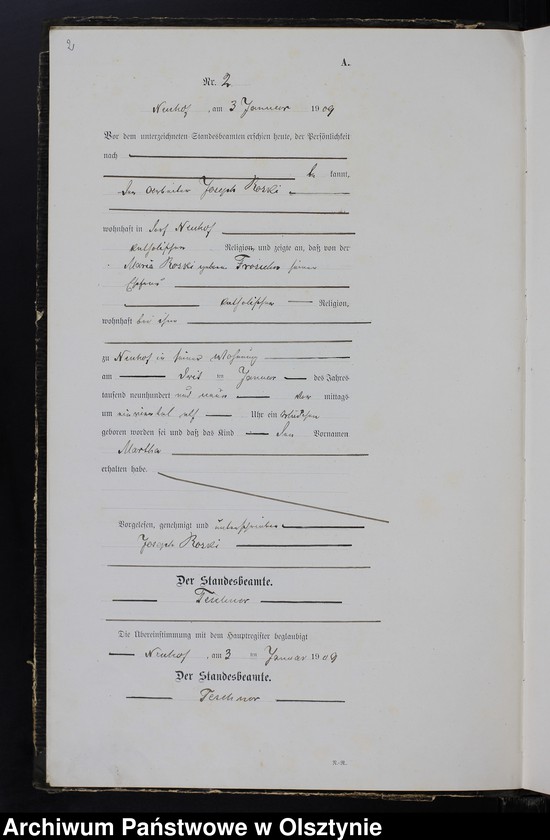 2
A.
Nr. 2
Neuhof, am 3 Januar 1909
Vor dem unterzeichneten Standesbeamten erschien heute, der Persönlichkeit
nach
be kannt,
der Arbeiter Joseph Roski
wohnhaft in Dorf Neuhof
katholischer Religion, und zeigte an, daß von der
Maria Roski geborene seiner
Ehefrau
katholischer Religion,
wohnhaft bei ihm
zu Neuhof in seiner Wohnung
am Januar des Jahres
tausend neunhundert und neun Vor mittags
um einviertel elf Uhr ein Mädchen
geboren worden sei und daß das Kind den Vornamen
Martha
erhalten habe.
Vorgelesen, genehmigt und unterschrieben
Joseph Roski
Der Standesbeamte.
Teschner
Die Übereinstimmung mit dem Hauptregister beglaubigt
Neuhof, am 3 ten Januar 1909
Der Standesbeamte.
Teschner
R-R.
Archiwum Państwowe w Olsztynie